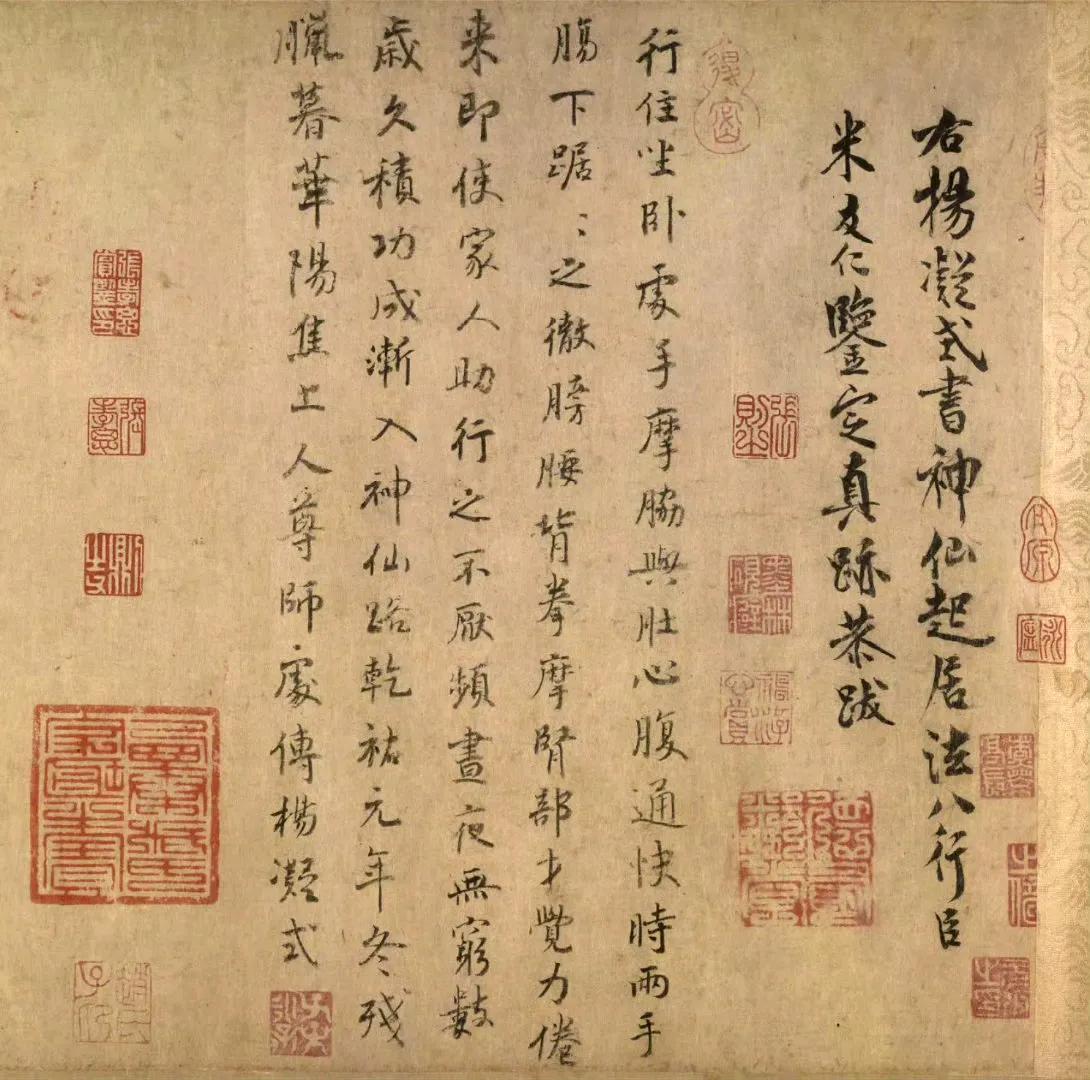 右揚凝式書神仙起居法八行臣
米友仁鑒定真跡恭跋
行住坐卧處手摩脇與肚心腹通快時兩手
腸下踞〻之徹膀腰背拳摩腎部才覺力倦
来即使家人助行之不厭頻晝夜無窮數
歲久積功成漸入神仙路乾祐元年冬殘
臘暮華陽焦上人尊師處傳楊凝式